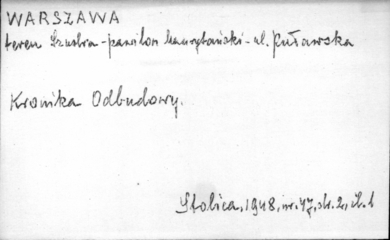 WARSZAWA
teren Szustra - pawilon Mauretański - ul. Puławska
Kronika Odbudowy.
Stolica, 1948, nr. 47, str. 2, il. 1